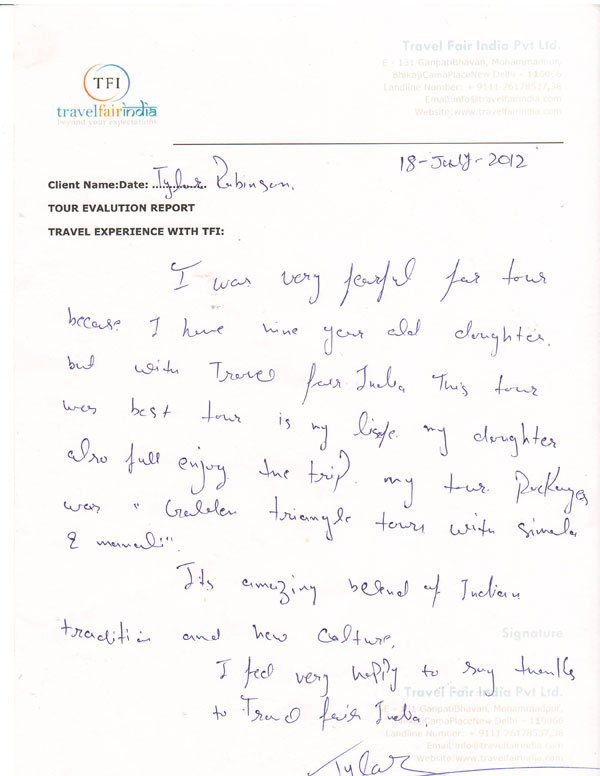 Travel Fair India Pvt Ltd.
E - 131 GanpatiBhavan, Mohammadpur,
BhikajiCamaPlaceNew Delhi - 110066
Landline Number: + 9111-26178537,38
Email:info@travelfairindia.com
Website:www.travelfairindia.com
TFI
travelfairindia
beyond your expectations
18-July-2012
Client Name:Date: .............. Tylar Rubinson.
TOUR EVALUTION REPORT
TRAVEL EXPERIENCE WITH TFI:
I was very fearful for tour
because I have nine year old doughter.
but with Travel fair India This tour
was best tour is my life. my doughter
also full enjoy the trip. my tour Packages
was "Golden triangle tours with simala
& manali".
Its amazing belend of Indian
tradition and new Culture.
Signature
I feel very happy to say thanks
to Travel fair India.
Travel Fair India Pvt Ltd.
E - 131 GanpatiBhavan, Mohammadpur,
BhikajiCamaPlaceNew Delhi - 110066
Landline Number: + 9111-26178537,38
Email:info@travelfairindia.com
Website:www.travelfairindia.com
Tylar